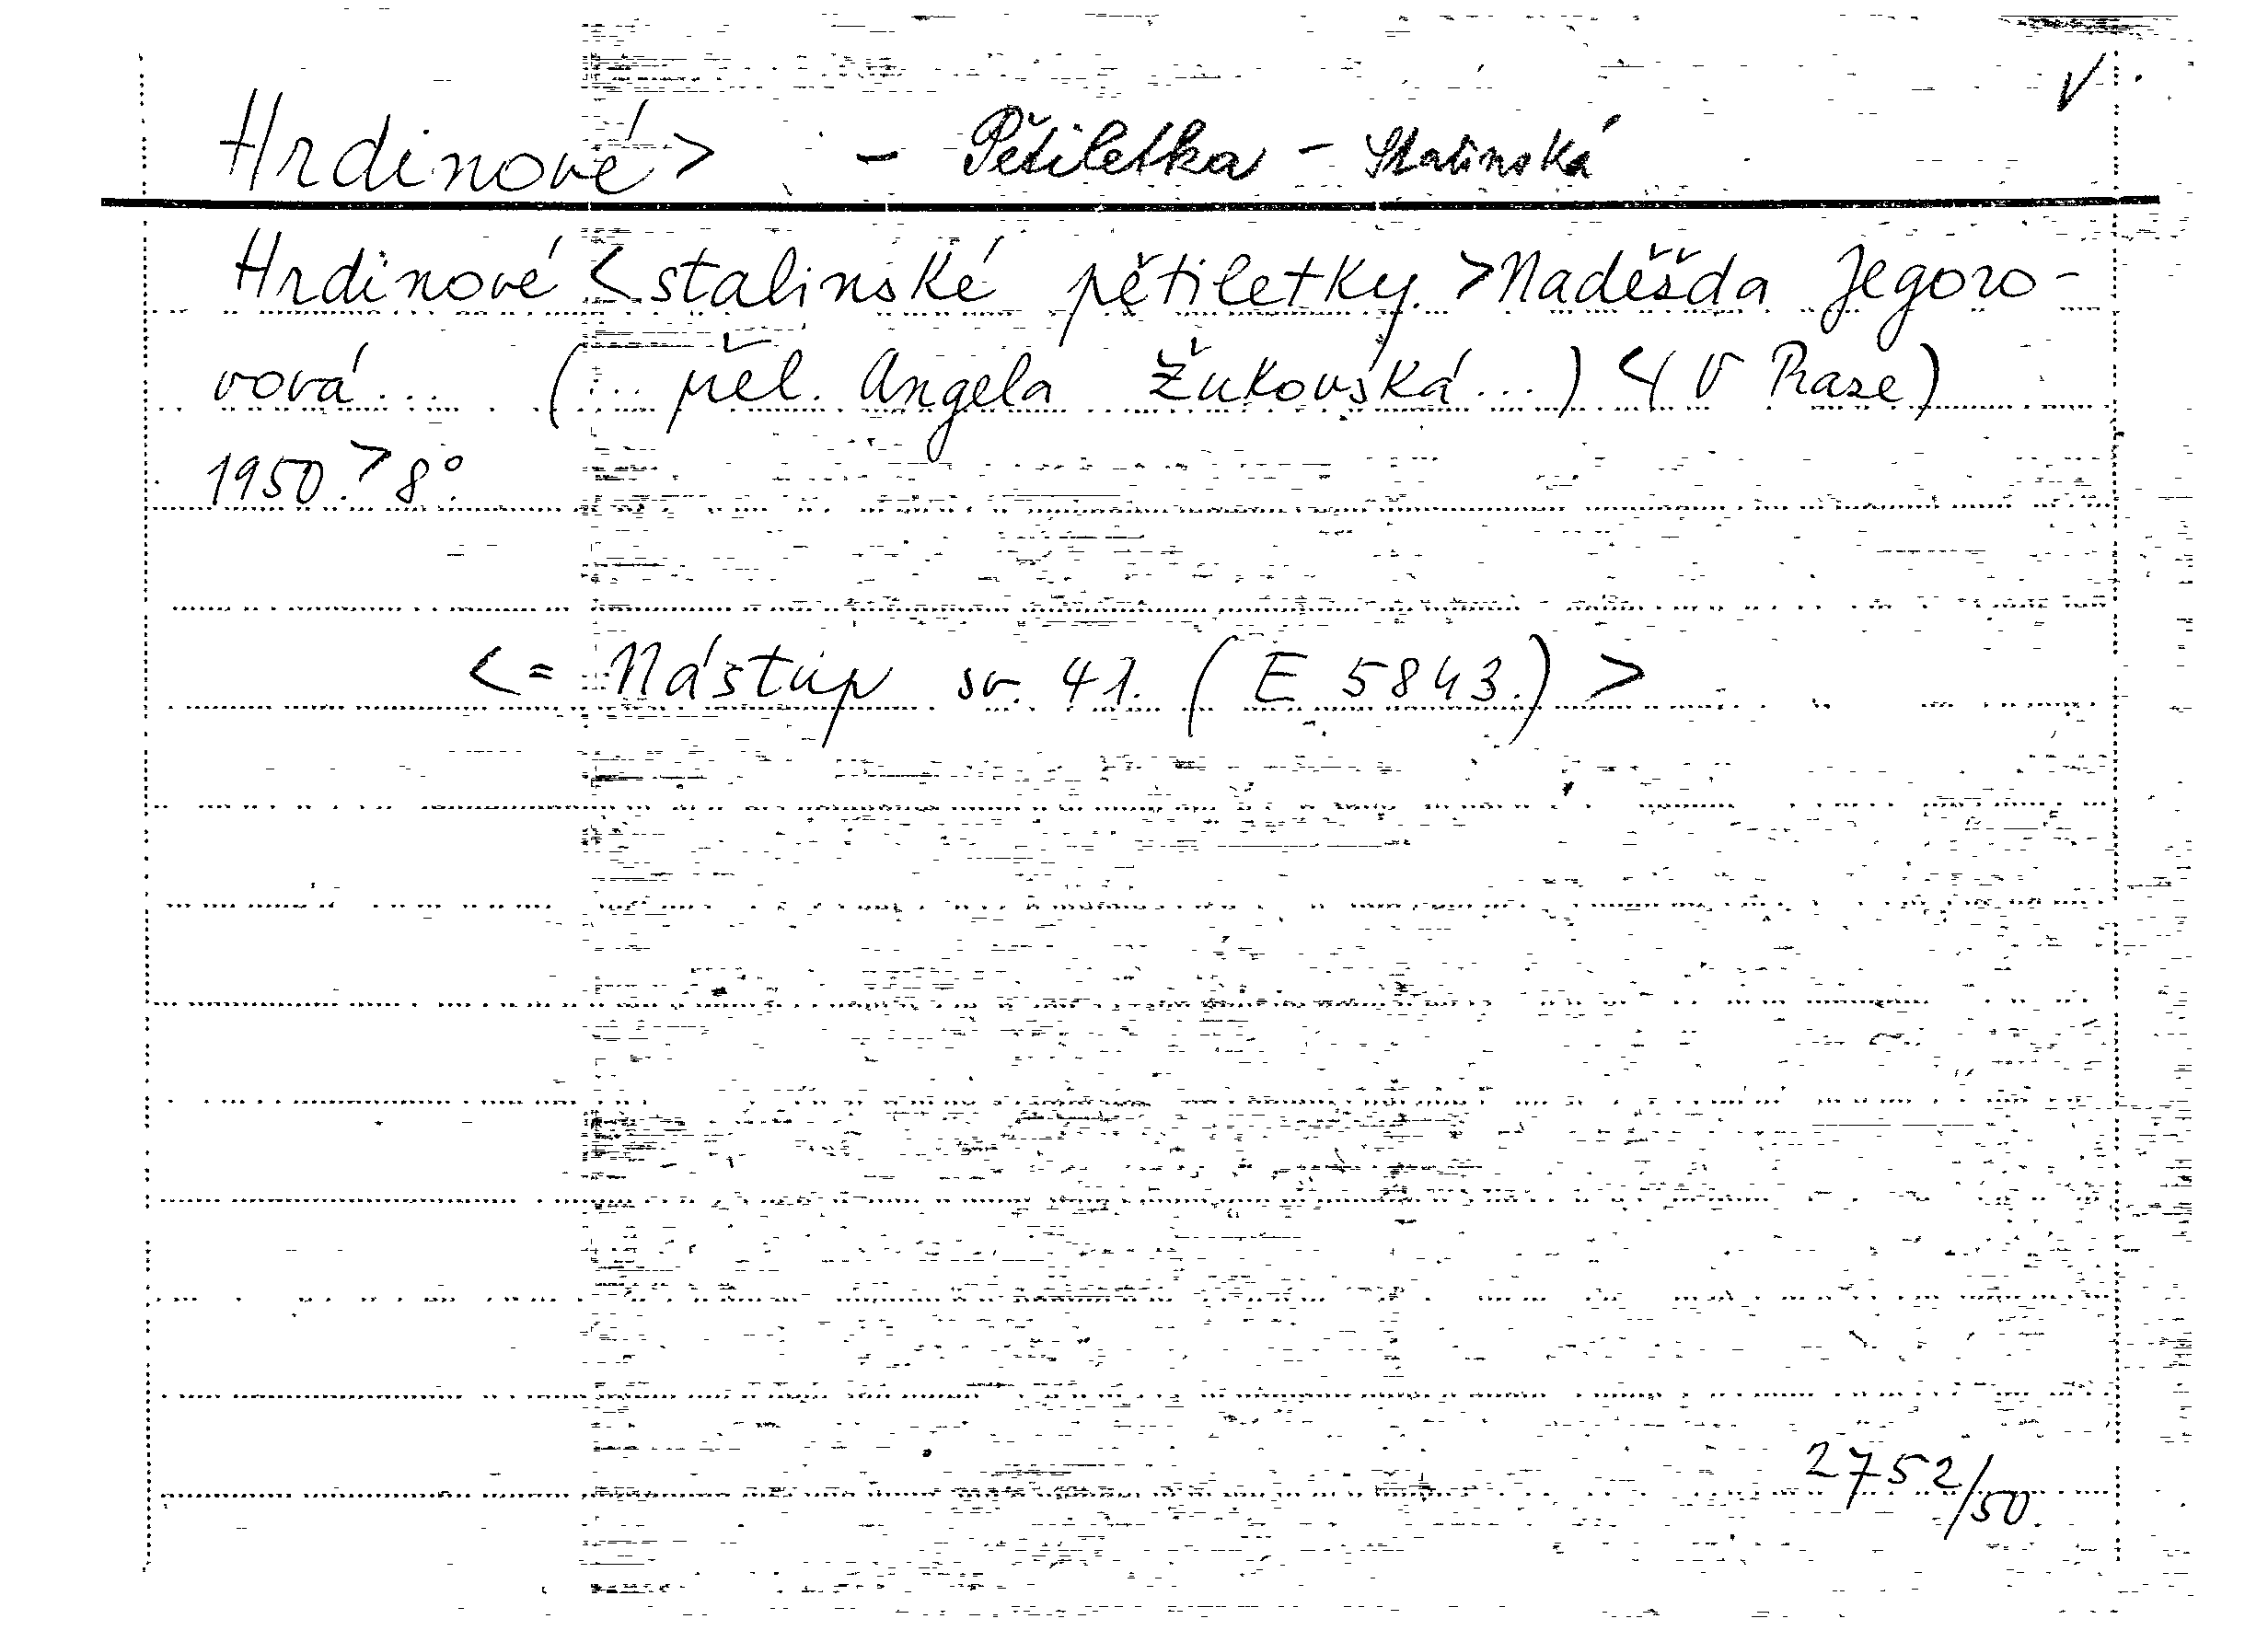 Hrdinové > - Pětiletka - Stalinská
Hrdinové < stalinské pětiletky. > Naděšda Jegoro-
vová... (... přel. Angela Žukovská...) < (V Praze)
1950. > 8°.
< = Nástup sv. 41. (E 5843.) >
2752/50.